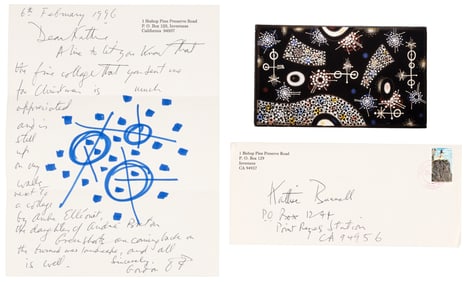 6th February 1996
1 Bishop Pine Preserve Road
P. O. Box 129, Inverness
California 94937
Dear Kathie,
A line to let you know that
the fine collage that you sent me
for Christmas is much
appreciated
and is
still
up
on my
wall
next to
a collage
by Aube Elléouët,
the daughter of André Breton
Green shoots are coming back on
the burned landscape, and all
is well. Sincerely,
Gordon
1 Bishop Pine Preserve Road
P. O. Box 129
Inverness
CA 94937
Kathie
PO Box 1244
Point Reyes Station
CA 94956